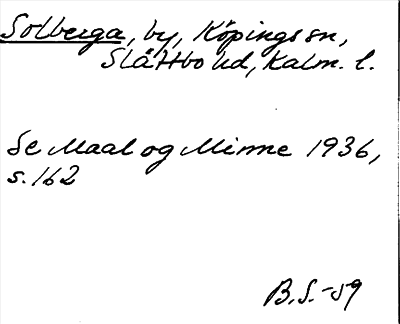 Solberga, by, Köpings sn,
Slättbo hd, Kalm. l.
Se Maal og Minne 1936,
s. 162
B.S. -59